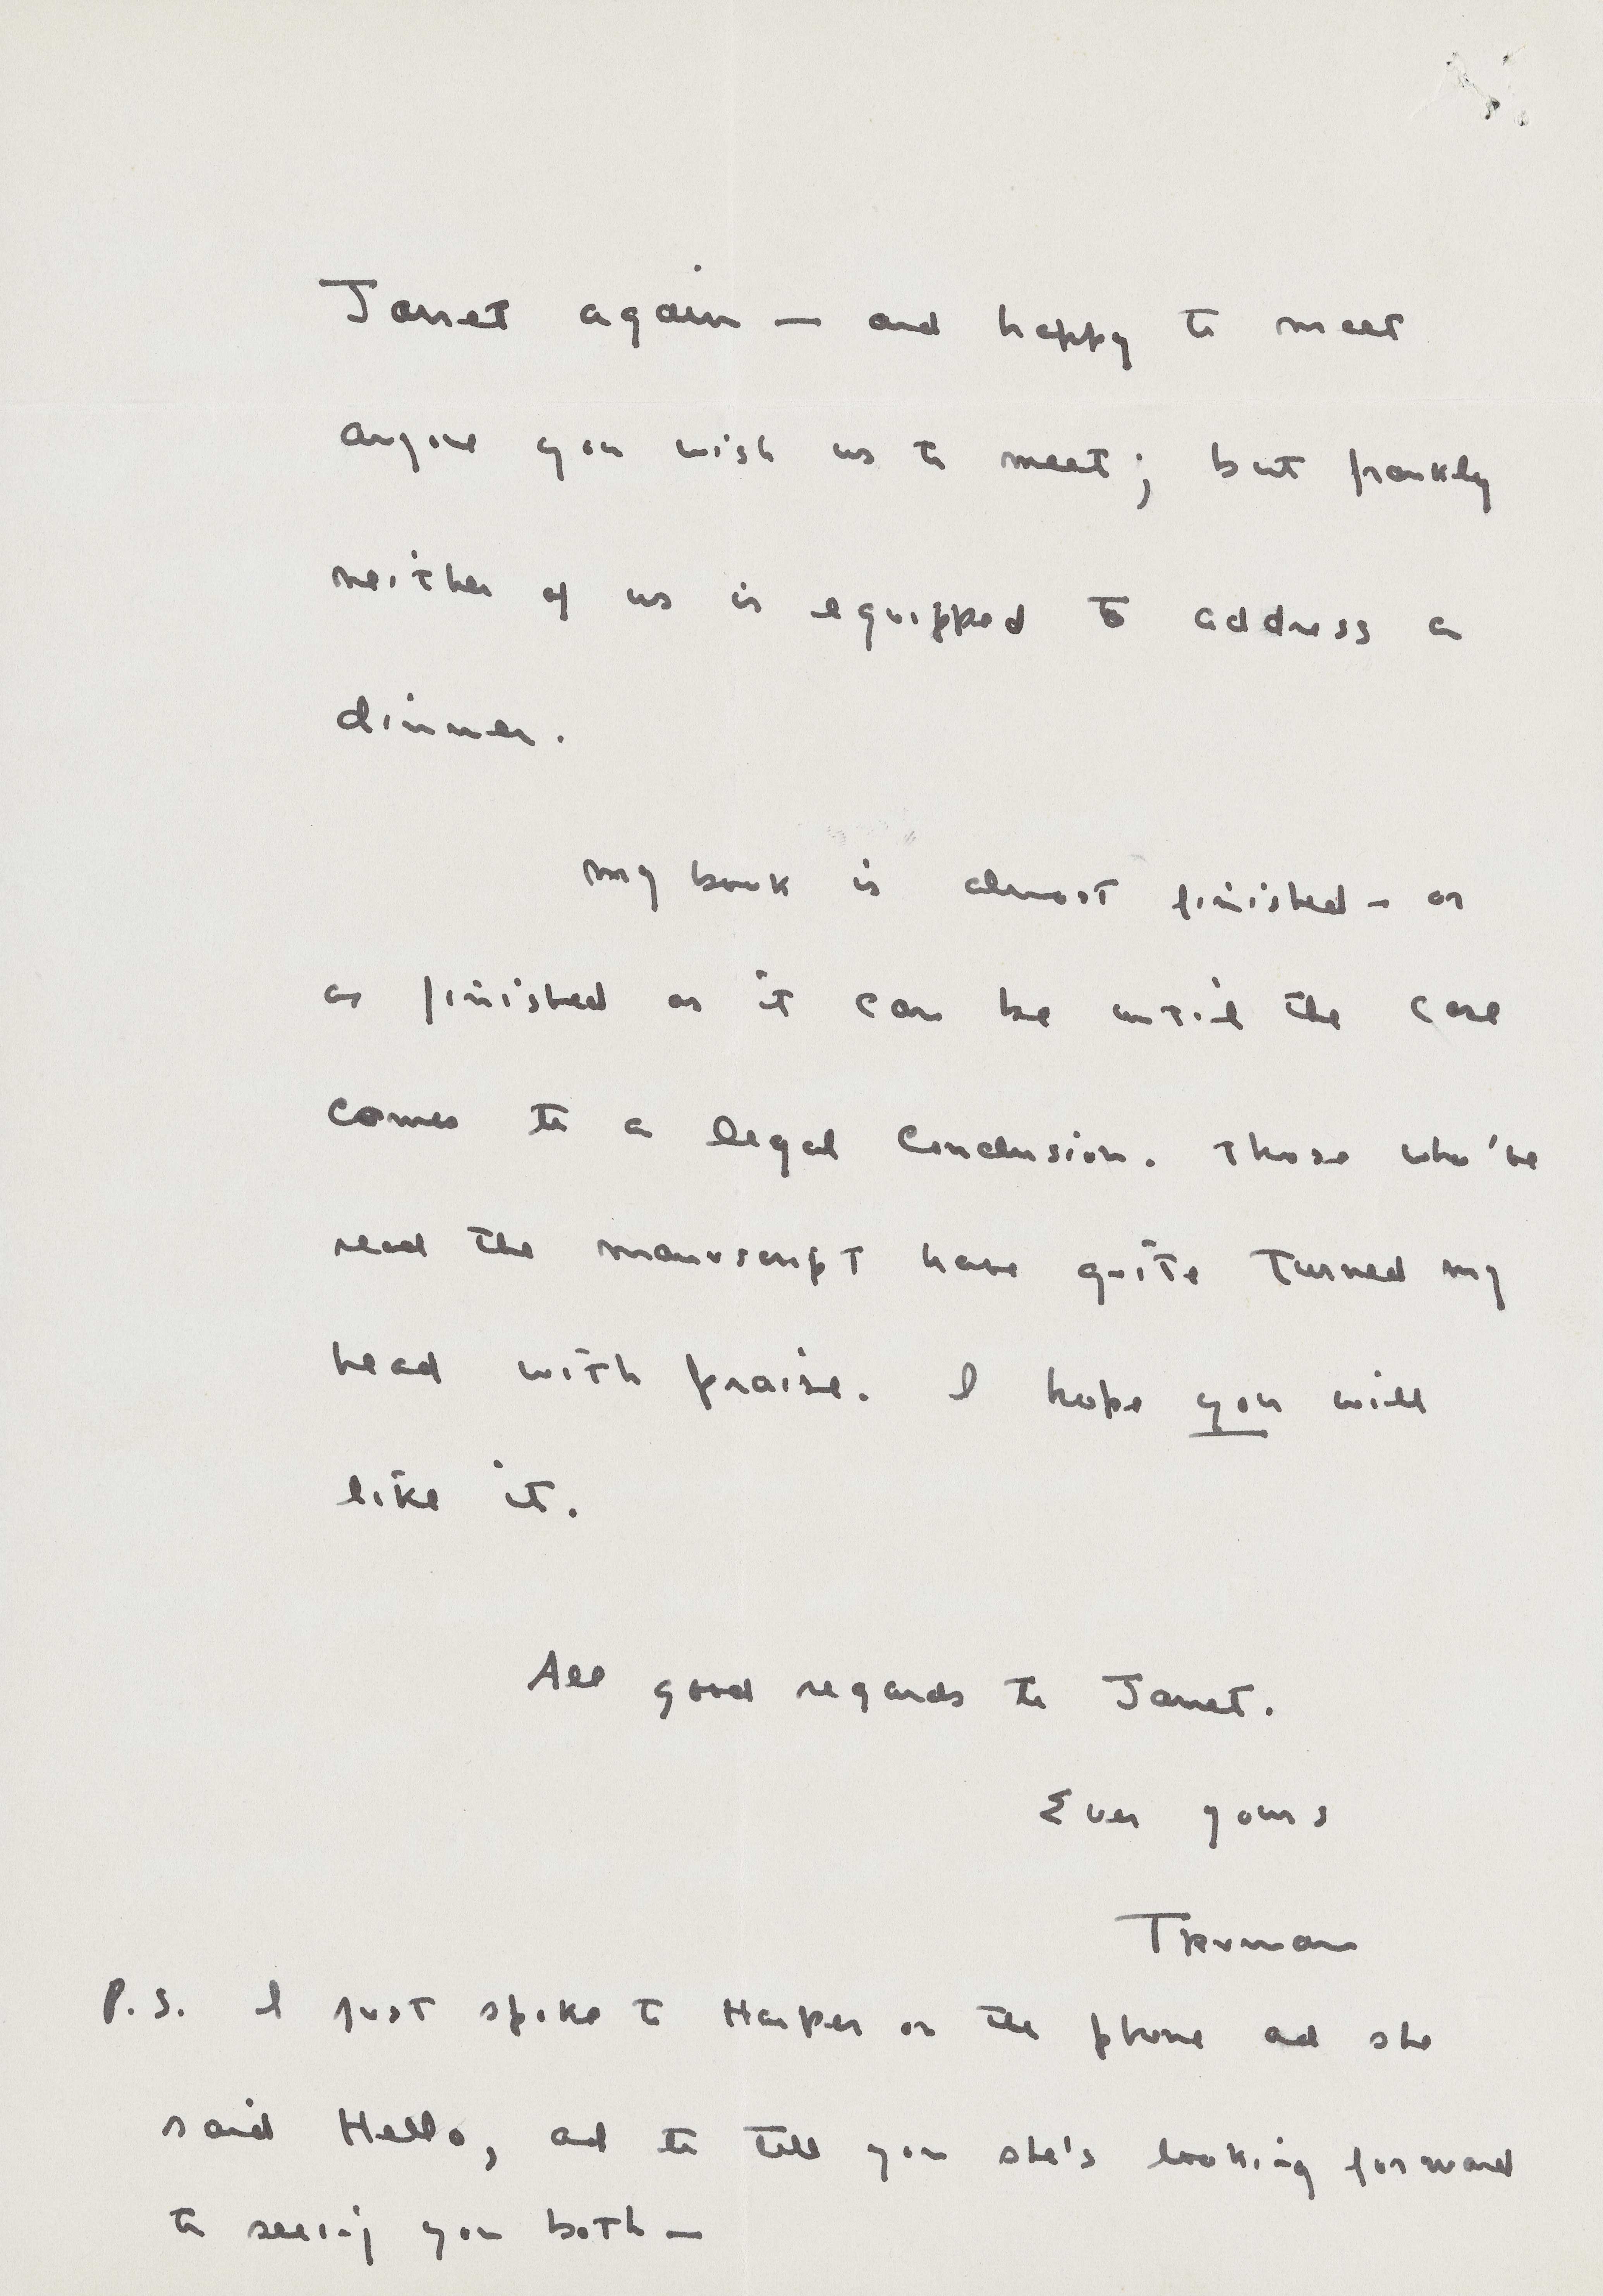 Janet again — and happy to meet
anyone you wish us to meet; but frankly
neither of us is equipped to address a
dinner.
My book is almost finished - or
as finished as it can be until the case
comes to a legal conclusion. Those who've
read the manuscript have quite turned my
head with praise. I hope you will
like it.
All good regards to Janet.
Ever yours
Truman
P.S. I just spoke to Harper on the phone and she
said Hello, and to tell you she's looking forward
to seeing you both —